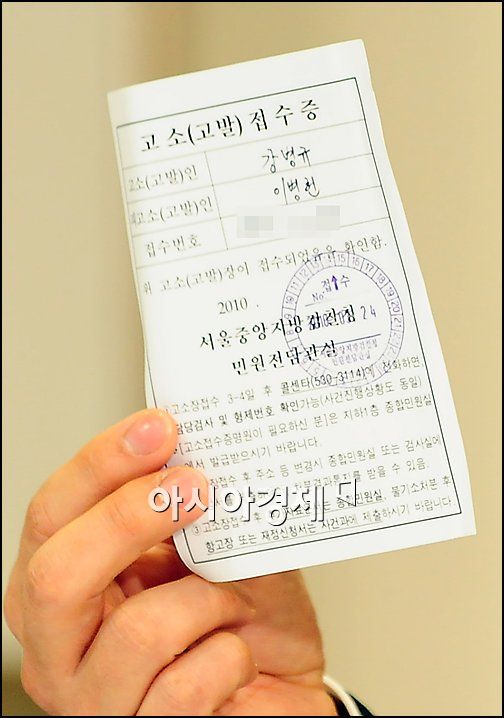 고소(고발)접수증
고소(고발)인 강병규
피고소(고발)인 이병헌
접수번호
위 고소(고발)장이 접수되었음을 확인함.
2010 .
접수
No
24
서울중앙지방검찰청
민원전담관실
고소장접수 3-4일 후 콜센타(530-3114)에 전화하면
담당검사 및 형제번호 확인가능(사건진행상황도 동일)
[고소접수증명원이 필요하신 분]은 지하1층 종합민원실
에서 발급받으시기 바랍니다.
접수 후 주소 등 변경시 종합민원실 또는 검사실에
처분결과통지를 받을 수 있음.
③ 고소장접수 후 종합민원실, 불기소처분 후
항고장 또는 재정신청서는 사건과에 제출하시기 바랍니다
아시아경제